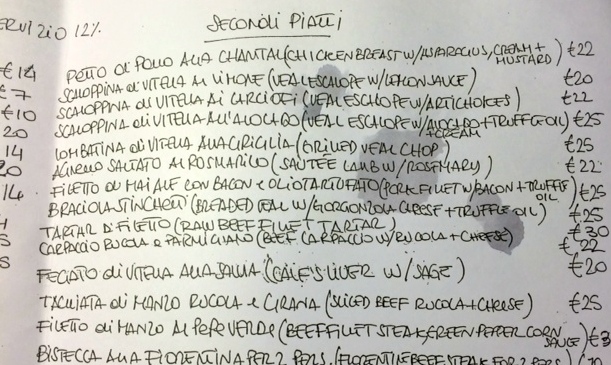 SERVIZIO 12%
SECONDI PIATTI
€14 PETTO DI POLLO ALLA CHANTAL (CHICKEN BREAST W/ASPARAGUS, CREAM + MUSTARD) €22
€7 SCALOPPINA DI VITELLA AL LIMONE (VEAL ESCLOPE W/LEMON SAUCE) €20
€10 SCALOPPINA DI VITELLA AI CARCIOFI (VEAL ESCLOPE W/ARTICHOKES) €22
20 SCALOPPINA DI VITELLA ALL'AVOCADO (VEAL ESCLOPE W/AVOCADO + TRUFFLE OIL + CREAM) €25
14 LOMBATINA DI VITELLA ALLA GRIGLIA (GRILLED VEAL CHOP) €25
20 AGNELLO SALTATO AL ROSMARINO (SAUTÉE LAMB W/ROSEMARY) €22
14 FILETTO DI MAIALE CON BACON E OLIO TARTUFATO (PORK FILLET W/BACON + TRUFFLE OIL) €25
BRACIOLA STINCHETTI (BREADED VEAL W/GORGONZOLA CHEESE + TRUFFLE OIL) €25
TARTAR DI FILETTO (RAW BEEF FILLET TARTAR) €30
CARPACCIO RUCOLA E PARMIGIANO (BEEF CARPACCIO W/RUCOLA + CHEESE) €22
FEGATO DI VITELLA ALLA SALVIA (CALF'S LIVER W/ SAGE) €20
TAGLIATA DI MANZO RUCOLA E GRANA (SLICED BEEF RUCOLA + CHEESE) €25
FILETTO DI MANZO AL PEPE VERDE (BEEF FILLET STEAK, GREEN PEPER CORN SAUCE) €3
BISTECCA ALLA FIORENTINA PER 2 PERS. (FLORENTINE BEEF STEAK FOR 2 PERS)